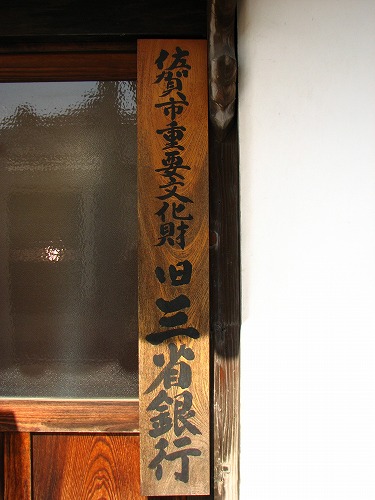 佐賀市重要文化財旧三省銀行